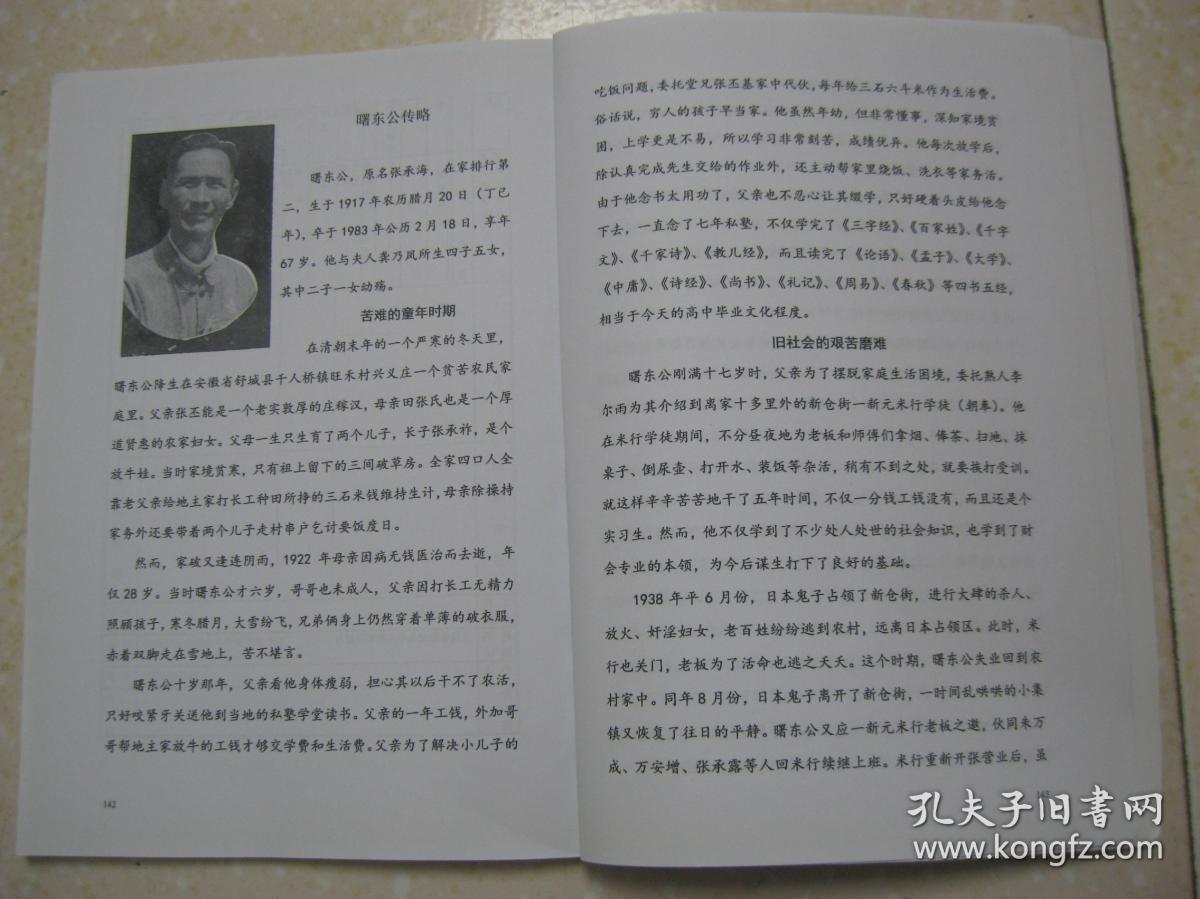 曙东公传略
曙东公，原名张承海，在家排行第
二，生于1917年农历腊月20日（丁巳
年），卒于1983年公历2月18日，享年
67岁。他与夫人龚乃凤所生四子五女，
其中二子一女幼殇。
苦难的童年时期
在清朝末年的一个严寒的冬天里，
曙东公降生在安徽省舒城县千人桥镇旺禾村兴义庄一个贫苦农民家
庭里。父亲张丕能是一个老实敦厚的庄稼汉，母亲田张氏也是一个厚
道贤惠的农家妇女。父母一生只生育了两个儿子，长子张承祚，是个
放牛娃。当时家境贫寒，只有祖上留下的三间破草房。全家四口人全
靠老父亲给地主家打长工种田所挣的三石米钱维持生计，母亲除操持
家务外还要带着两个儿子走村串户乞讨要饭度日。
然而，家破又逢连阴雨，1922年母亲因病无钱医治而去逝，年
仅28岁。当时曙东公才六岁，哥哥也未成人，父亲因打长工无精力
照顾孩子，寒冬腊月，大雪纷飞，兄弟俩身上仍然穿着单薄的破衣服，
赤着双脚走在雪地上，苦不堪言。
曙东公十岁那年，父亲看他身体瘦弱，担心其以后干不了农活，
只好咬紧牙关送他到当地的私塾学堂读书。父亲的一年工钱，外加哥
哥帮地主家放牛的工钱才够交学费和生活费。父亲为了解决小儿子的
142
吃饭问题，委托堂兄张丕基家中代伙，每年给三石六斗米作为生活费。
俗话说，穷人的孩子早当家。他虽然年幼，但非常懂事，深知家境贫
困，上学更是不易，所以学习非常刻苦，成绩优异。他每次放学后，
除认真完成先生交给的作业外，还主动帮家里烧饭、洗衣等家务活。
由于他念书太用功了，父亲也不忍心让其缀学，只好硬着头皮给他念
下去，一直念了七年私塾，不仅学完了《三字经》、《百家姓》、《千字
文》、《千家诗》、《教儿经》，而且读完了《论语》、《孟子》、《大学》、
《中庸》、《诗经》、《尚书》、《礼记》、《周易》、《春秋》等四书五经，
相当于今天的高中毕业文化程度。
旧社会的艰苦磨难
曙东公刚满十七岁时，父亲为了摆脱家庭生活困境，委托熟人李
尔雨为其介绍到离家十多里外的新仓街一新元米行学徒（朝奉）。他
在米行学徒期间，不分昼夜地为老板和师傅们拿烟、俸茶、扫地、抹
桌子、倒尿壶、打开水、装饭等杂活，稍有不到之处，就要挨打受训。
就这样辛辛苦苦地干了五年时间，不仅一分钱工钱没有，而且还是个
实习生。然而，他不仅学到了不少处人处世的社会知识，也学到了财
会专业的本领，为今后谋生打下了良好的基础。
1938年平6月份，日本鬼子占领了新仓街，进行大肆的杀人、
放火、奸淫妇女，老百姓纷纷逃到农村，远离日本占领区。此时，米
行也关门，老板为了活命也逃之夭夭。这个时期，曙东公失业回到农
村家中。同年8月份，日本鬼子离开了新仓街，一时间乱哄哄的小集
镇又恢复了往日的平静。曙东公又应一新元米行老板之邀，伙同朱万
成、万安增、张承露等人回米行续继上班。米行重新开张营业后，虽
143
孔夫子旧书网
www.kongfz.com